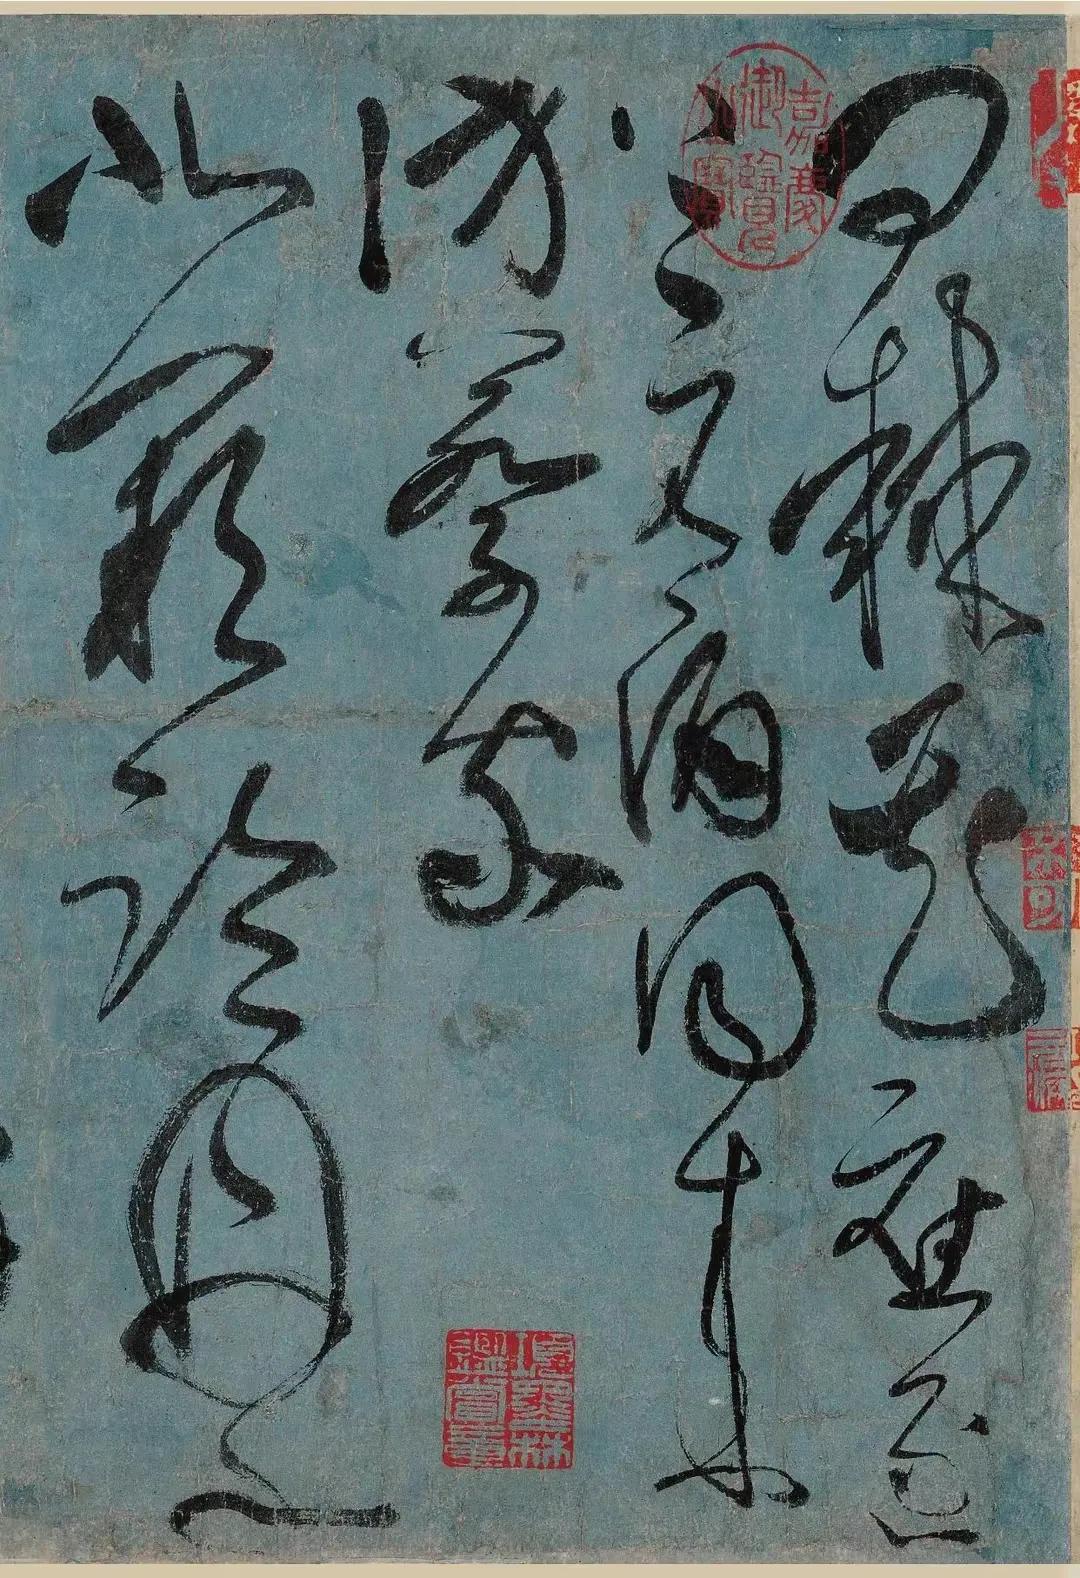 問棘花應逐
上元酒同來
訪蔡家
北闕臨丹水
嘉慶御覽之寶
項墨林鑑賞章